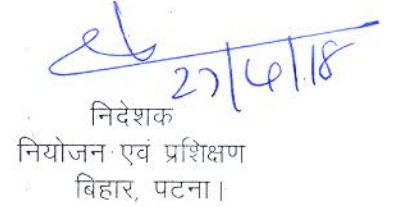 27/4/18
निदेशक
नियोजन एवं प्रशिक्षण
बिहार, पटना।